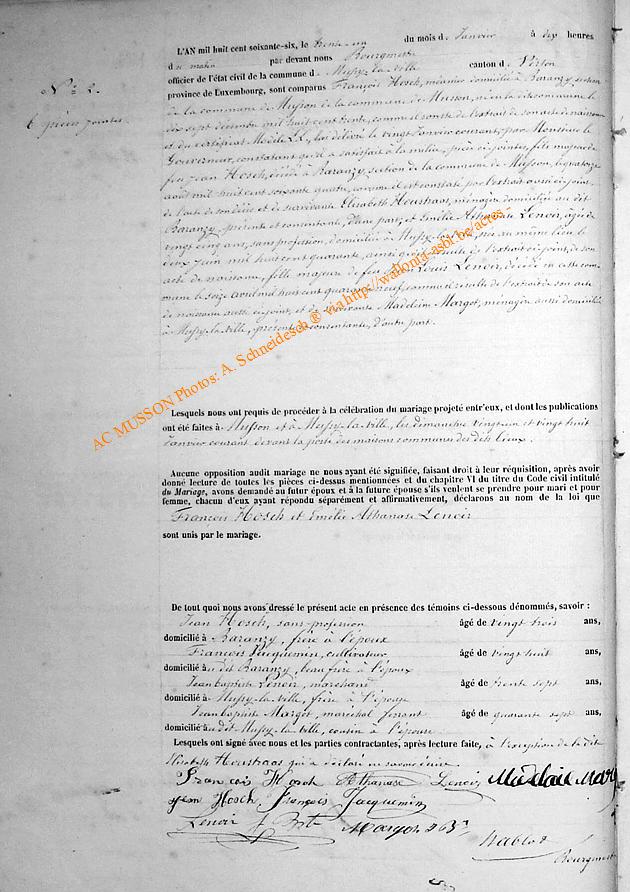 L'AN mil huit cent soixante-six, le trente-un du mois de Janvier à dix heures
du matin par devant nous Bourgmestre
officier de l'état civil de la commune de Mussy-la-ville canton de Virton
province de Luxembourg, sont comparus François Hosch, domicilié à Baranzy, section
N° 2. de la commune de Musson
6 pièces jointes
dix sept décembre mil huit cent trente, comme il conste de l'extrait de son acte de naissance
et du certificat Modèle LL, lui délivré le vingt Janvier courant, par Monsieur le
Gouverneur, constatant qu'il a satisfait à la milice, pièces ci-jointes, fils majeur de
feu Jean Hosch, décédé à Baranzy, section de la commune de Musson, le quatorze
août mil huit cent soixante quatre, comme il est constaté par l'extrait aussi ci-joint
de l'acte de son décès et de survivante Elisabeth Houstraas, ménagère domiciliée au dit
Baranzy, présente et consentante, d'une part; et Emélie Athanase Lenoir, âgée de
vingt cinq ans, sans profession, domiciliée à Mussy-la-ville, née au même lieu le
deux Juin mil huit cent quarante, ainsi qu'il résulte de l'extrait ci-joint, de son
acte de naissance, fille majeure de feu Louis Lenoir, décédé en cette com-
mune le seize avril mil huit cent quarante neuf, comme il résulte de l'extrait de son acte
de aussi ci-joint, et de survivante Madeleine Margot, ménagère aussi domiciliée
à Mussy-la-ville, présente et consentante, d'autre part.
AC MUSSON Photos: A. Schneidesch ® via http://wallonia-asbl.be/actes -
Lesquels nous ont requis de procéder à la célébration du mariage projeté entr'eux, et dont les publications
ont été faites à Musson et à Mussy-la-ville, les dimanches vingt un et vingt huit
Janvier courant devant la porte des maisons communes des dits lieux.
Aucune opposition audit mariage ne nous ayant été signifiée, faisant droit à leur réquisition, après avoir
donné lecture de toutes les pièces ci-dessus mentionnées et du chapitre VI du titre du Code civil intitulé
du Mariage, avons demandé au futur époux et à la future épouse s'ils veulent se prendre pour mari et pour
femme, chacun d'eux ayant répondu séparément et affirmativement, déclarons au nom de la loi que
François Hosch et Emélie Athanase Lenoir
sont unis par le mariage.
De tout quoi nous avons dressé le présent acte en présence des témoins ci-dessous dénommés, savoir :
Jean Hosch, sans profession âgé de vingt trois ans,
domicilié à Baranzy, frère à l'époux
François Jacquemin, cultivateur âgé de vingt huit ans,
domicilié au dit Baranzy, beau frère à l'époux
Jean baptiste Lenoir, marchand âgé de trente sept ans,
domicilié à Mussy-la-ville, frère à l'épouse
Jean baptiste Margot, maréchal ferrant âgé de quarante sept ans,
domicilié au dit Mussy-la-ville, cousin à l'épouse
Lesquels ont signé avec nous et les parties contractantes, après lecture faite, à l'exception de la dite
Elisabeth Houstraas qui a déclaré ne savoir écrire.
François Hosch Athanase Lenoir
Jean Hosch, François Jacquemin
Lenoir J Bte Margot
Bourgmestre